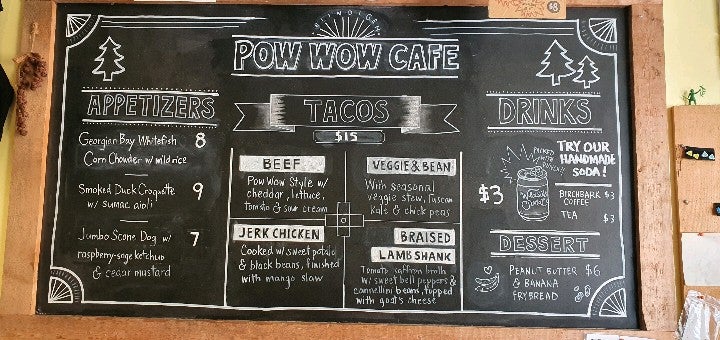 $8
NISH DISH
POW WOW CAFE
APPETIZERS
Georgian Bay Whitefish 8
Corn Chowder w/ wild rice
Smoked Duck Croquette 9
w/ sumac aioli
Jumbo Scone Dog w/ 7
raspberry-sage ketchup
& cedar mustard
TACOS
$15
BEEF
Pow Wow Style w/
cheddar, lettuce,
tomato & sour cream
JERK CHICKEN
Cooked w/ sweet potato
& black beans, finished
with mango slaw
VEGGIE & BEAN
With seasonal
veggie stew, Tuscan
kale & chick peas
BRAISED
LAMB SHANK
Tomato saffron broth
w/ sweet bell peppers &
cannellini beans, topped
with goat's cheese
DRINKS
$3
TRY OUR
HANDMADE
SODA!
BIRCHBARK $3
COFFEE
TEA $3
DESSERT
PEANUT BUTTER $6
& BANANA
FRYBREAD